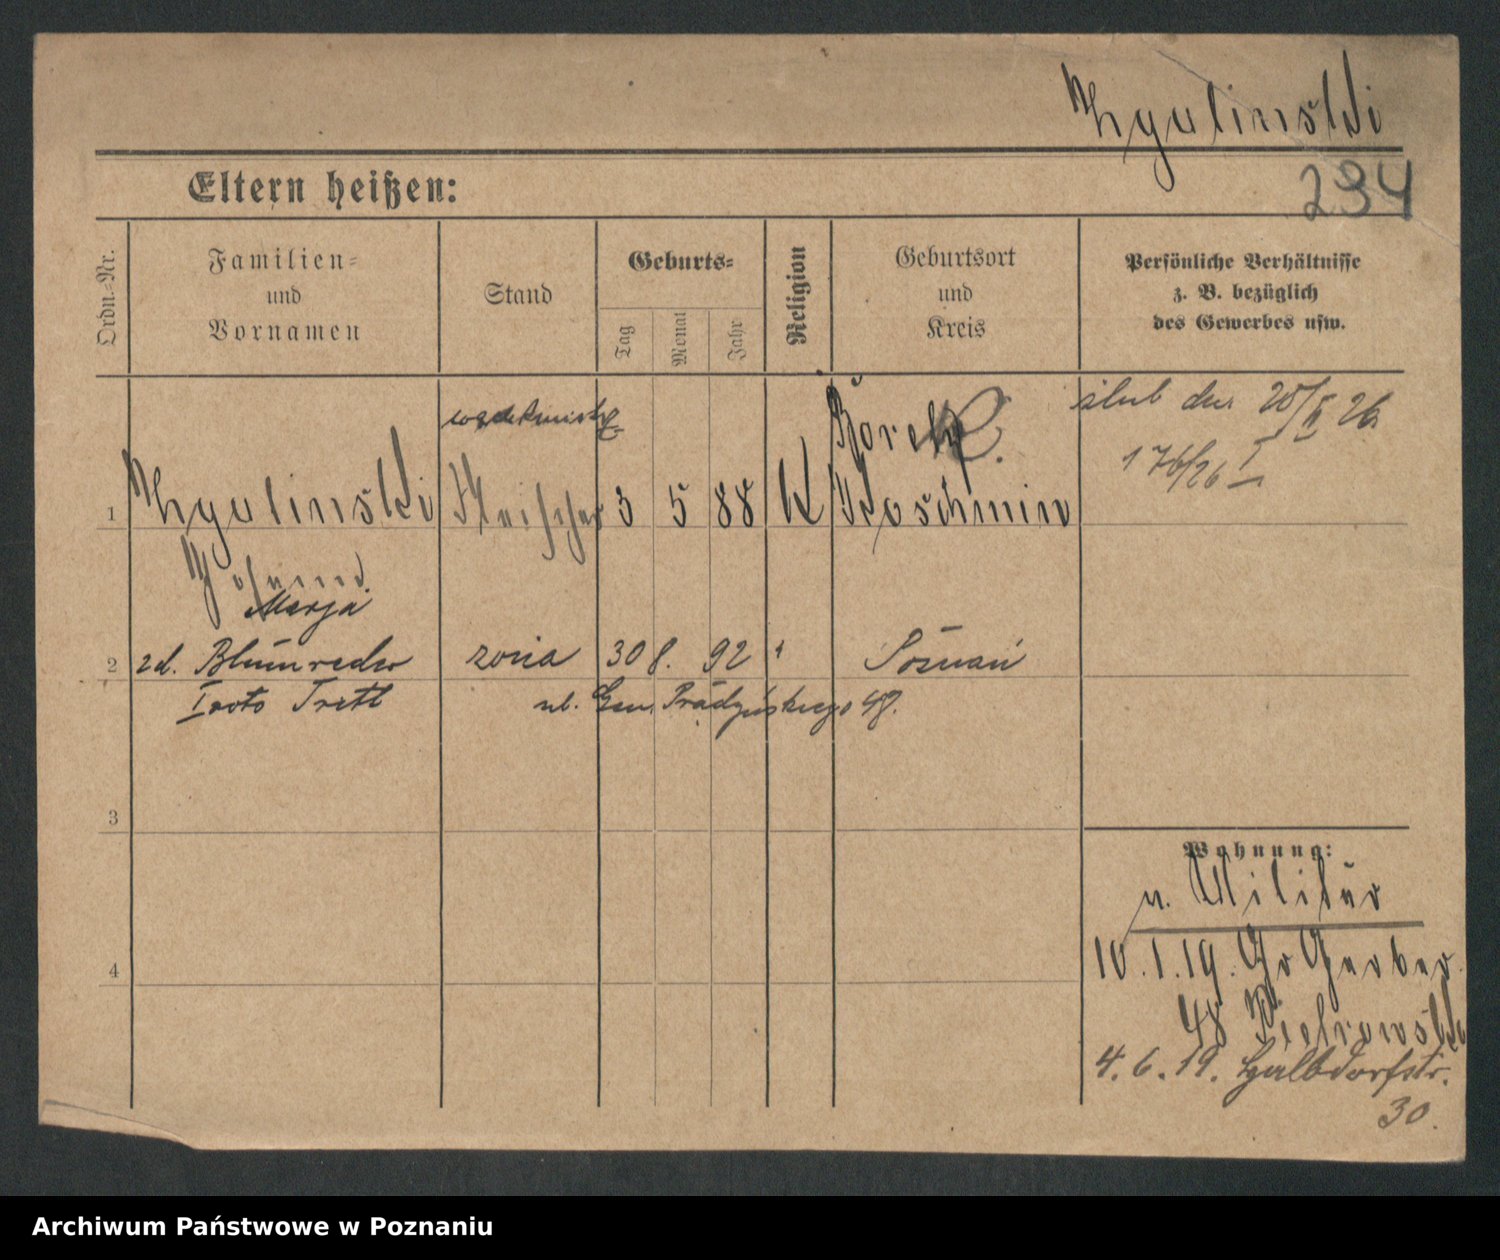 Zgulinski
294
Eltern heißen:
Ordn.-Nr.
Familien-
und
Vornamen
Stand
Geburts-
Tag
Monat
Jahr
Religion
Geburtsort
und
Kreis
Persönliche Verhältnisse
z. B. bezüglich
des Gewerbes usw.
ślub dn. 20/II 26
176/26 I
1
Fleischer
3 5 88
K
Borek
Koschmin
Marja
2
zd. Blümreder
żona
30 8. 92
"
Poznań
I voto Trett
ul. Gen. Prądzyńskiego 48.
3
4
Wohnung:
v. Militär
10.1.19. Gr Gerber
48 Pietrowski
4.6.19. Halbdorfstr.
30.
Archiwum Państwowe w Poznaniu